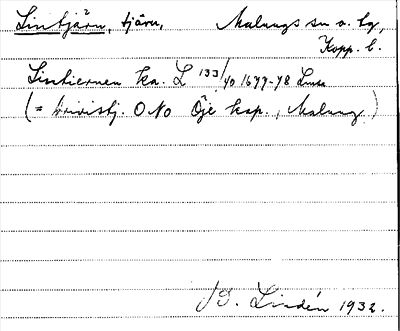 Lintjärn, tjärn, Malungs sn o. hg,
Kopp. l.
Lintiernen ka. L 133/40 1677-78 Lmsa
(= tj. ONO Öje kap., Malung)
B. Lindén 1932.